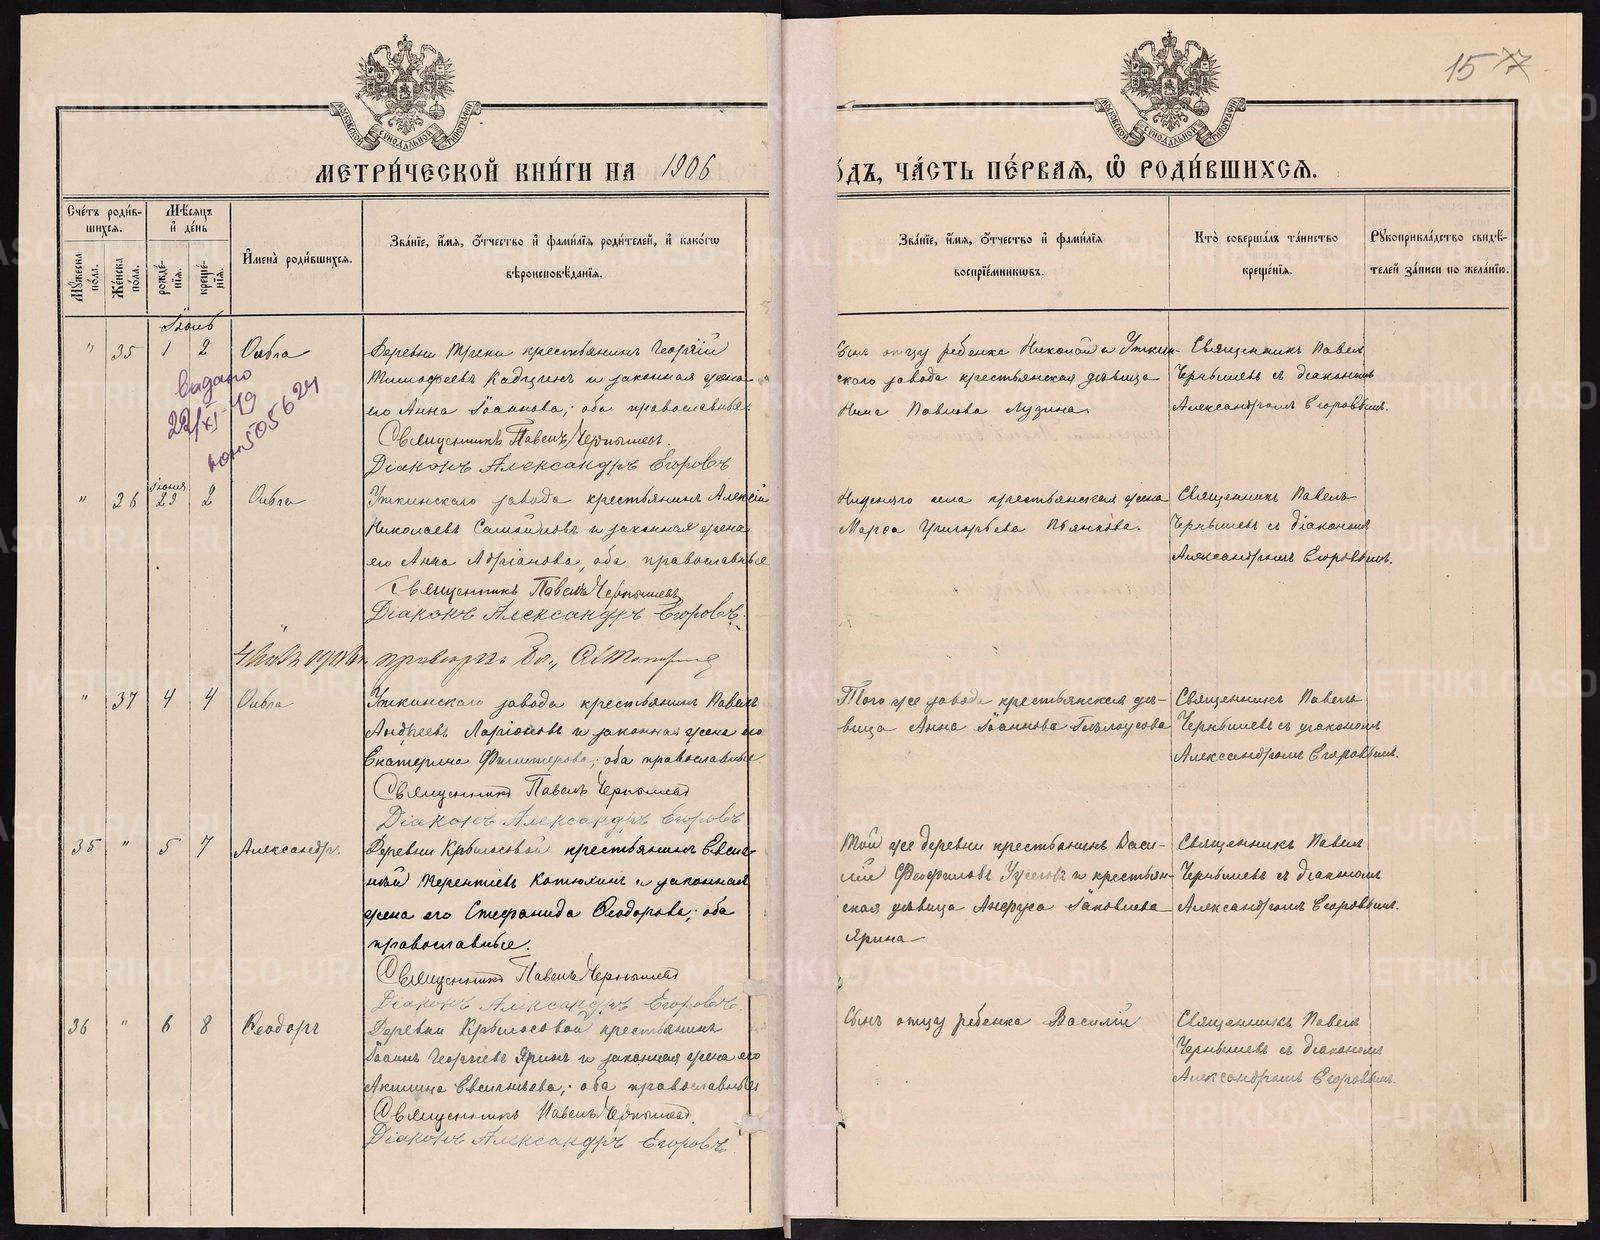 15 77
МОСКОВСКОЙ СѴНОДАЛЬНОЙ ТИПОГРАФІИ
МОСКОВСКОЙ СѴНОДАЛЬНОЙ ТИПОГРАФІИ
МЕТРИ́ЧЕСКОЙ КНИ́ГИ НА 1906
ОДЪ, ЧА́СТЬ ПЕ́РВАѦ, Ѽ РОДИ́ВШИХСѦ.
Сче́тъ роди́в-
шихсѧ.
Мꙋжеска по́ла.
Же́нска по́ла.
Мѣ́сѧцъ и҆ де́нь
рожде́-нїѧ.
креще́-нїѧ.
И҆мена̀ роди́вшихсѧ.
Зва́нїе, и҆́мѧ, ѻ҆́тчество и҆ фами́лїѧ роди́телей, и҆ како́гѡ
вѣроисповѣ́данїѧ.
Зва́нїе, и҆́мѧ, ѻ҆́тчество и҆ фами́лїѧ
воспрїе́мникѡвъ.
Кто̀ соверша́лъ та́инство
креще́нїѧ.
Рꙋкоприкла́дство свидѣ́-
телей за́писи по жела́нїю.
Іюль
" 35 1 2 Ольга
Деревни Треки крестьянинъ Георгій
Тимофеевъ Кадцинъ и законная жена
его Анна Іоаннова; оба православные.
Священникъ Павелъ Чернышевъ.
Діаконъ Александръ Егоровъ
Сынъ отцу ребенка Николай и Уткин-
скаго завода крестьянская дѣвица
Нина Павлова Лузина
Священникъ Павелъ
Чернышевъ съ діакономъ
Александромъ Егоровымъ.
выдано
22/XI 49
505624
" 36 Іюня 29 2 Ольга
Уткинскаго завода крестьянинъ Алексій
Николаевъ Самойловъ и законная жена
его Анна Адріанова, оба православные
Священникъ Павелъ Чернышевъ
Діаконъ Александръ Егоровъ.
Нижняго села крестьянская жена
Марѳа Григорьева Пьянкова.
Священникъ Павелъ
Чернышевъ съ діакономъ
Александромъ Егоровымъ.
" 37 4 4 Ольга
Уткинскаго завода крестьянинъ Павелъ
Андреевъ Ларіоновъ и законная жена его
Екатерина Филитерова; оба православные.
Священникъ Павелъ Чернышевъ
Діаконъ Александръ Егоровъ
Того же завода крестьянская дѣ-
вица Анна Іоаннова Бѣлоусова
Священникъ Павелъ
Чернышевъ съ діакономъ
Александромъ Егоровымъ.
35 " 5 7 Александръ
Деревни Крылосовой крестьянинъ Евси-
гній Терентіевъ Котюхинъ и законная
жена его Стефанида Ѳеодорова; оба
православные.
Священникъ Павелъ Чернышевъ
Діаконъ Александръ Егоровъ.
Той же деревни крестьянинъ Васи-
лій Феофиловъ Ужеговъ и крестьян-
ская дѣвица Анфуса Іаковлева
Ярина
Священникъ Павелъ
Чернышевъ съ діакономъ
Александромъ Егоровымъ.
36 " 6 8 Ѳеодоръ
Деревни Крылосовой крестьянинъ
Іоаннъ Георгіевъ Яринъ и законная жена его
Акилина Евсигніева; оба православные
Священникъ Павелъ Чернышевъ.
Діаконъ Александръ Егоровъ.
Сынъ отцу ребенка Василій
Священникъ Павелъ
Чернышевъ съ діакономъ
Александромъ Егоровымъ.
METRIKI.GASO-URAL.RU